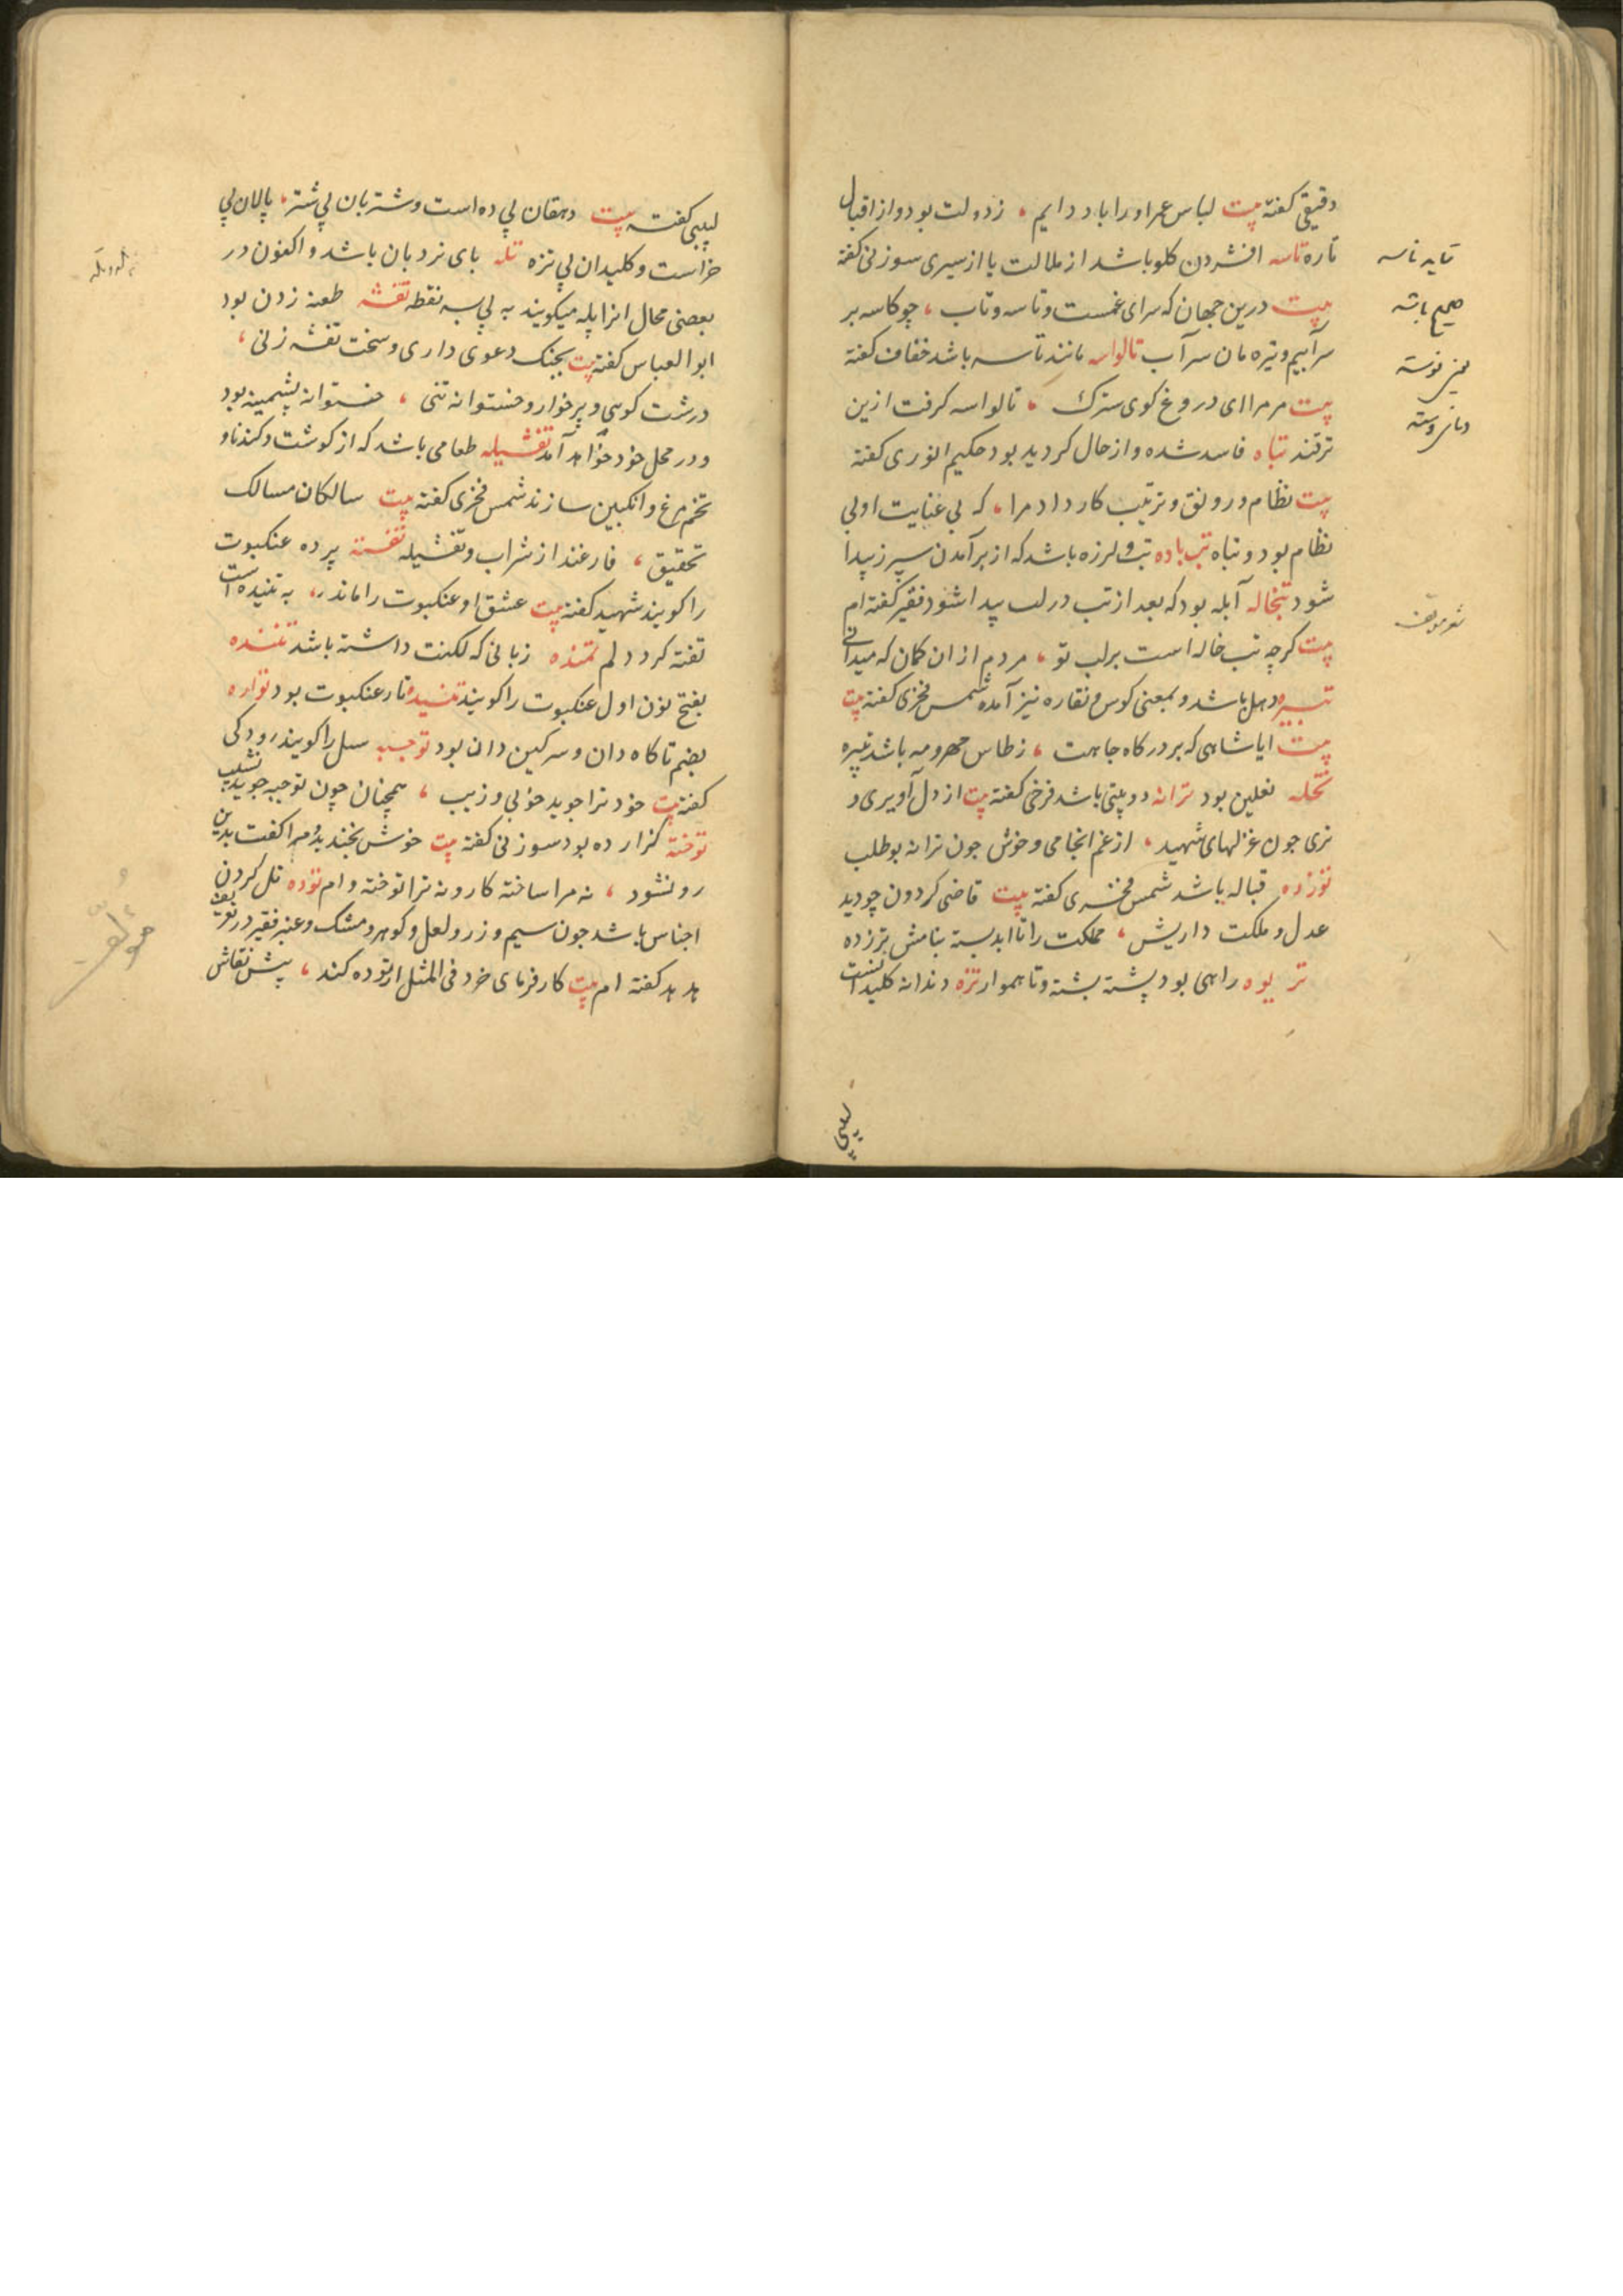 دقیقی کفته بیت لباس عمر اورا باد دایم ، ز دولت بود و از اقبال
تاره تاسه افشردن کلو باشد از ملالت یا از سیری سوزنی کفته
بیت درین جهان که سرای غمست و تاسه و تاب ، چو کاسه بر
سر آبیم و تیره مان سر آب تالواسه مانند تاسه باشد خفاف کفته
بیت مر مرا ای دروغ کوی سترک ، تالواسه کرفت ازین
ترفند تباه فاسد شده و از حال کردیده بود حکیم انوری کفته
بیت نظام و رونق و ترتیب کار داد مرا ، که بی عنایت او بی
نظام بود و تباه تب باده تب و لرزه باشد که از بر آمدن سپرز پیدا
شود تبخاله آبله بود که بعد از تب در لب پیدا شود فقیر کفته ام
بیت کرچه تب خاله است بر لب تو ، مردم از ان کمان که میدانی
تبیره دهل باشد و بمعنی کوس و نقاره نیز آمده شمس فخری کفته بیت
بیت ایا شاهی که بر درکاه جاهت ، ز طاس مهر و مه باشد تبیره
تخله نعلین بود ترانه دوبیتی باشد فرخی کفته بیت از دل آویزی و
تری چون غزلهای شهید ، از غم انجامی و خوش چون ترانه بوطلب
تززده قباله باشد شمس فخری کفته بیت قاضی کردون چو دید
عدل و ملکت داریش ، مملکت را تا ابد بسته بنامش تززده
تریوه راهی بود پشته پشته و ناهموار تزه دندانه کلیدانست
تاسه
صحیح باشه
لبیبی
لبیبی کفته بیت دهقان بی ده است و شتربان بی شتر ، پالان بی
خراست و کلیدان بی تزه تله پای نردبان باشد و اکنون در
بعضی محال انرا پله میکویند به پی سه نقطه تفشه طعنه زدن بود
ابو العباس کفته بیت بجنک دعوی داری و سخت تفشه زنی ،
درشت کوهی و پرخوار و خستوانه تنی ، خستوانه پشمینه بود
و در محل خود خواهد آمد تفشیله طعامی باشد که از کوشت و کندنا و
تخم مرغ و انکبین سازند شمس فخری کفته بیت سالکان مسالک
تحقیق ، فارغند از شراب و تفشیله تفسته پرده عنکبوت
را کویند شهید کفته بیت عشق او عنکبوت را ماند ، به تنیده است
تفته کرد دلم تمنده زبانی که لکنت داشته باشد تننده
بفتح نون اول عنکبوت را کویند تنیده تار عنکبوت بود تواره
بضم تا کاه دان و سرکین دان بود توجبه سیل را کویند رودکی
کفته بیت خود ترا جوید خوبی و زیب ، همچنان چون توجبه جوید نشیب
توخته کزارده بود سوزنی کفته بیت خوش بخندید و مرا کفت بدین
رو نشود ، نه مرا ساخته کار و نه ترا توخته وام توده تل کردن
اجناس باشد چون سیم و زر و لعل و کوهر و مشک و عنبر فقیر در تعریف
هدهد کفته ام بیت کارفرمای خرد فی المثل ار توده کند ، پیش نقاش